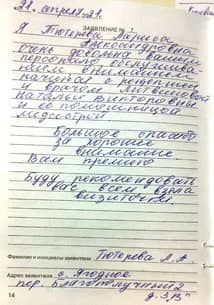 21. апреля 21г.
ЗАЯВЛЕНИЕ №
Я Тютерева Лариса
Александровна
очень довольна вашим
персоналом обслужива-
ния вниманием
пациента с решением
и врачом Литвиновой
Натальи Викторовны
и помощницей
медсестрой
Большое спасибо
за хорошее
внимание
Вам премного
Буду рекомендовать
вас всем взяла
визиточки.
Фамилия и инициалы заявителя Тютерева Л. А
Адрес заявителя с. Ягодное
пер. Благополучный 2
14